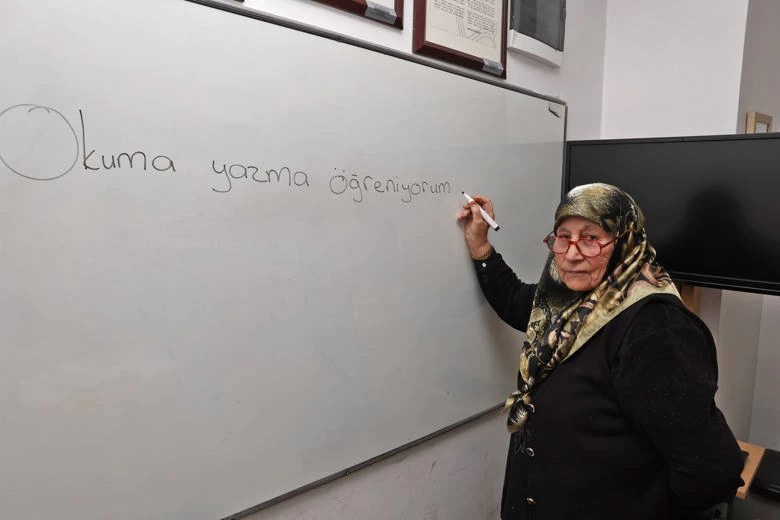 Okuma yazma öğreniyorum